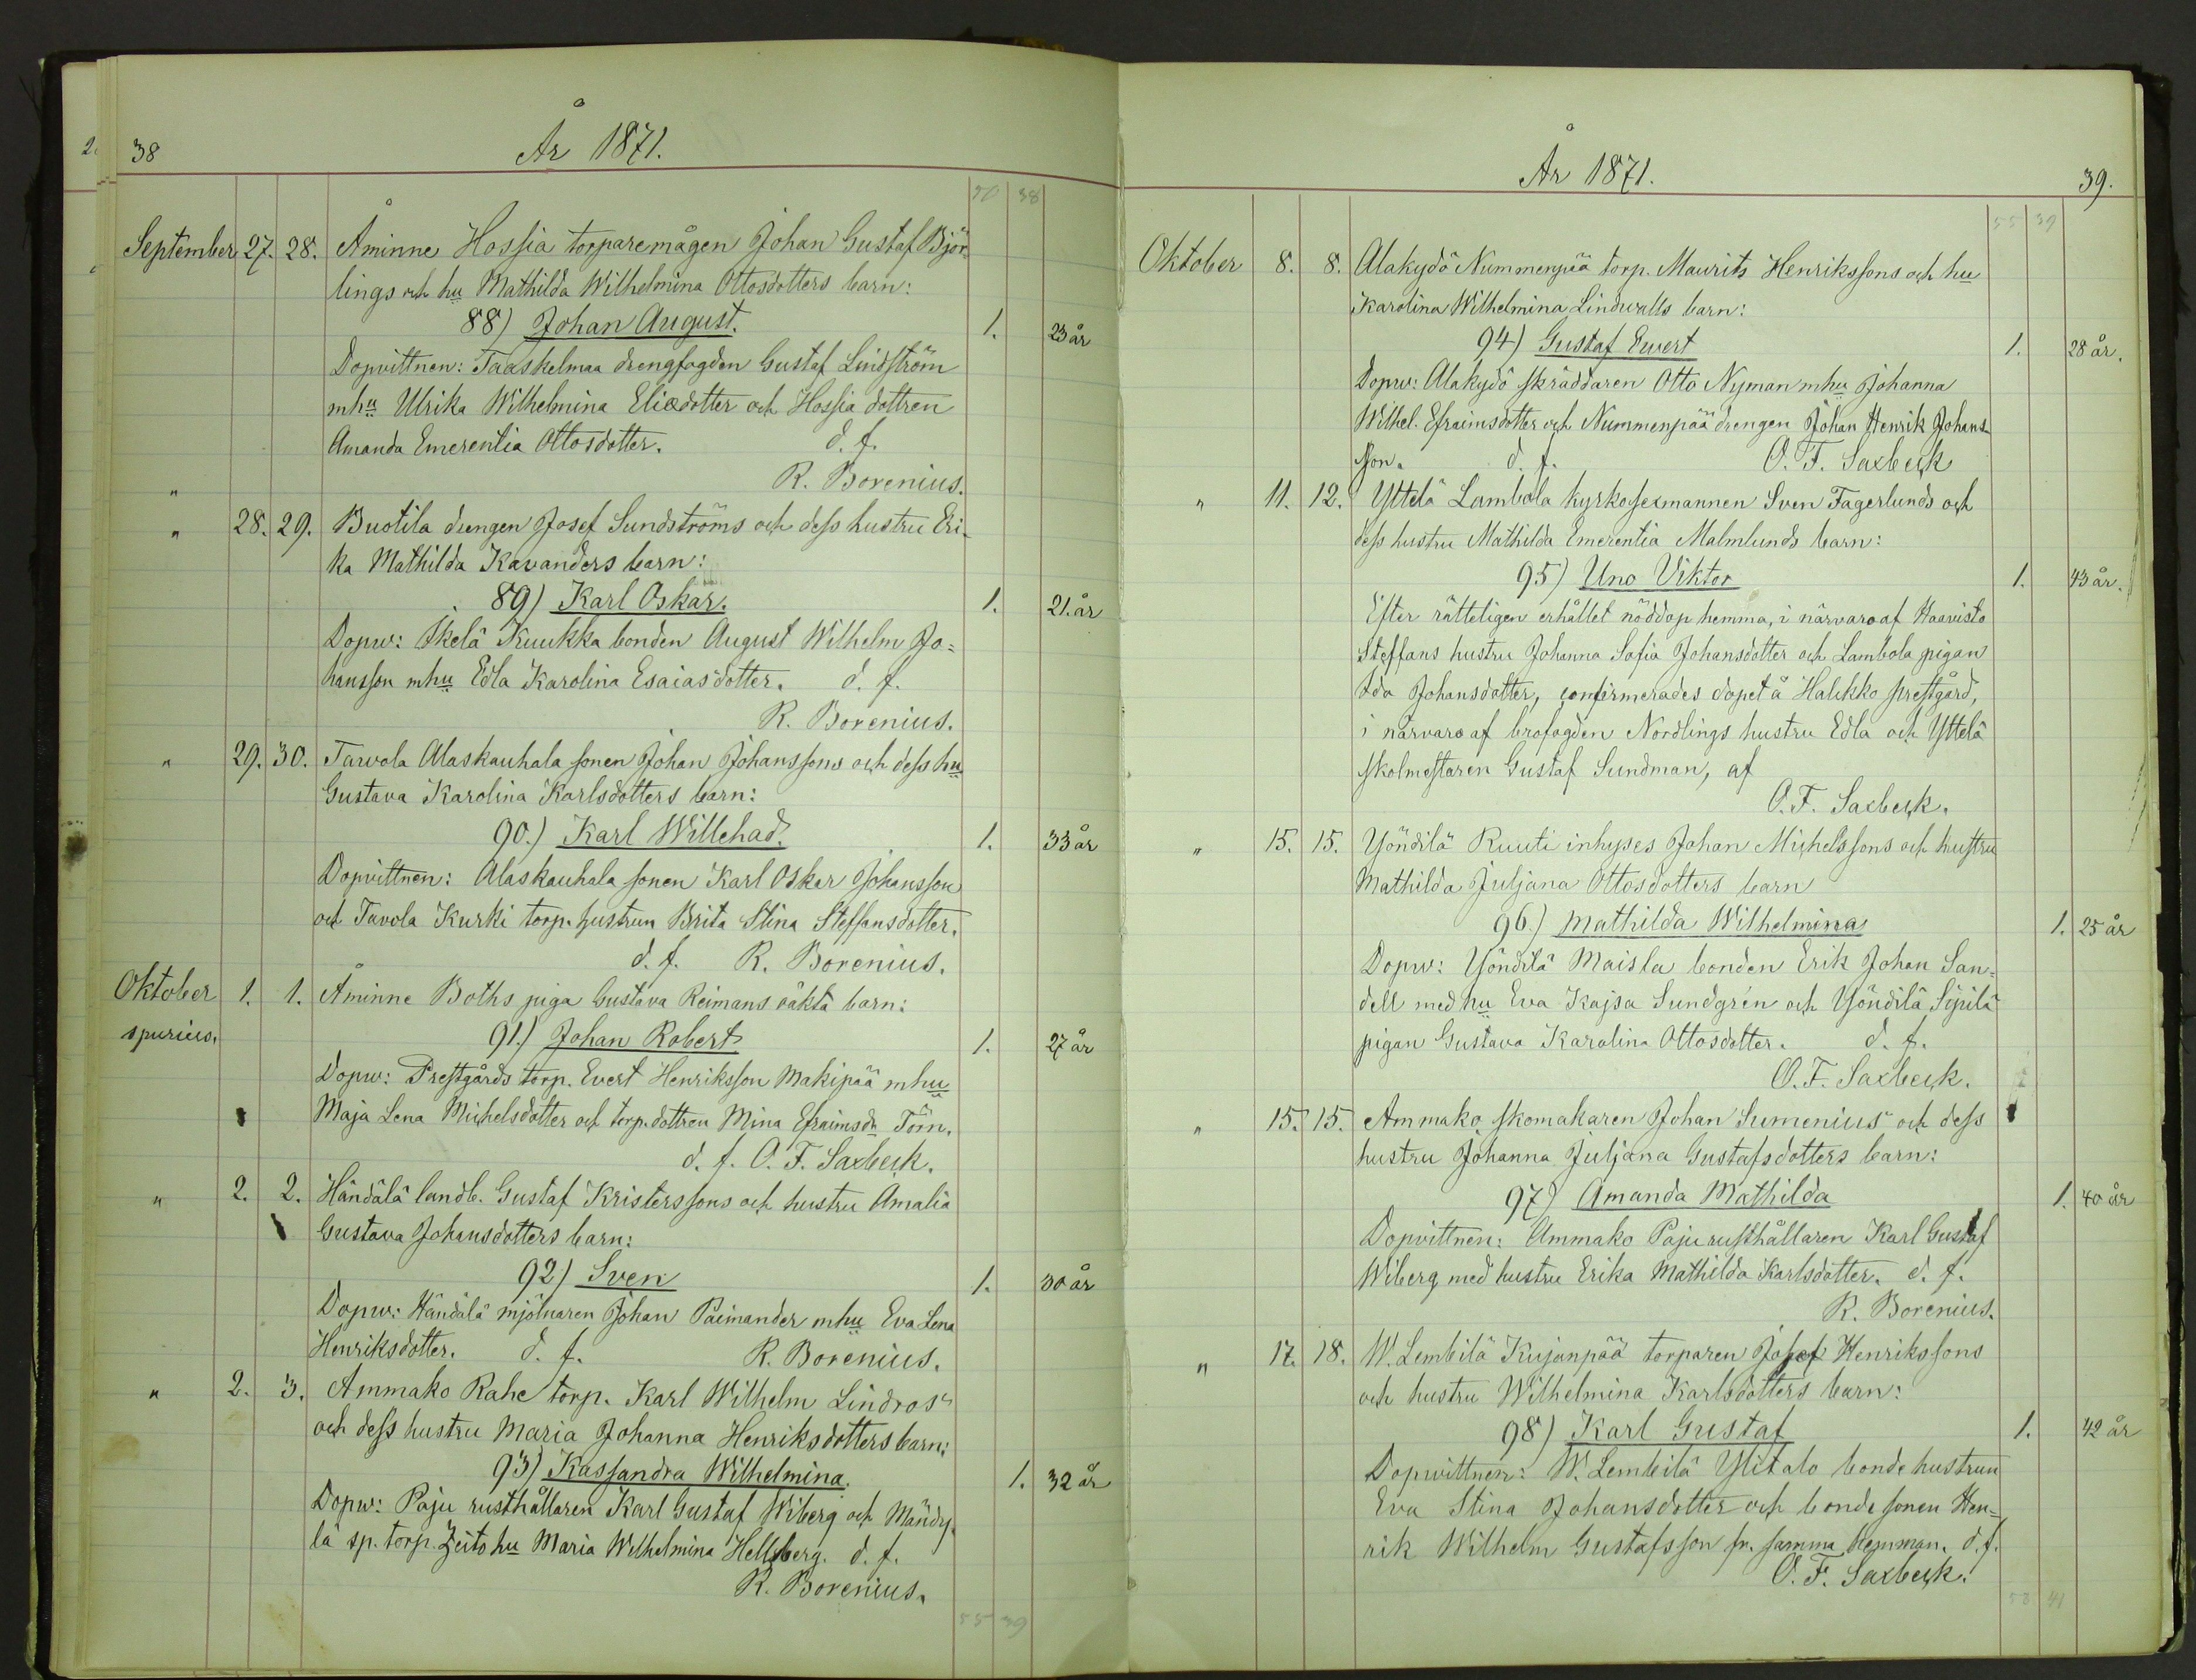 38
År 1871.
50 38
September 27. 28. Åminne Hossia torparemågen Johan Gustaf Björ-
lings och hu Mathilda Wilhelmina Ottosdotters barn:
88) Johan August. 1. 23 år
Dopvittnen: Taaskelmaa drengfogden Gustaf Lindström
mhu Ulrika Wilhelmina Eliædotter och Hossia dottren
Amanda Emerentia Ottosdotter. d. f.
R. Borenius.
"
" 28. 29. Buotila drengen Josef Sundströms och dess hustru Eri-
ka Mathilda Kavanders barn:
89) Karl Oskar. 1. 21. år
Dopw: Ikelä Kuukka bonden August Wilhelm Jo=
hansson mhu Edla Karolina Esaiasdotter. d. f.
R. Borenius.
" 29. 30. Tavvola Alaskauhala sonen Johan Johanssons och dess hu
Gustava Karolina Karlsdotters barn:
90.) Karl Willehad. 1. 33 år
Dopvittnen: Alaskauhala sonen Karl Oskar Johansson
och Tavola Kurki torp. hustrun Brita Stina Steffansdotter.
d. f. R. Borenius.
Oktober 1. 1. Åminne Boths piga Gustava Reimans oäkta barn:
spurius.
91.) Johan Robert 1. 27 år
Dopw: Prestgårds torp. Evert Henriksson Makipää mhu
Maja Lena Michelsdotter och torp. dottren Mina Efraimsdr Törn.
d. f. O. F. Saxbeck.
" 2. 2. Händälä landb. Gustaf Kristerssons och hustru Amalia
Gustava Johansdotters barn:
92) Sven 1. 30 år
Dopw: Händälä mjölnaren Johan Paimander mhu Eva Lena
Henriksdotter. d. f. R. Borenius.
" 2. 3. Ammako Rahe torp. Karl Wilhelm Lindros"
och dess hustru Maria Johanna Henriksdotters barn:
93) Kassandra Wilhelmina. 1. 32 år
Dopw: Paju rusthållaren Karl Gustaf Wiberg och Mändy-
lä sp. torp. Zeito hu Maria Wilhelmina Hellsberg. d. f.
R. Borenius.
55 39
År 1871.
39.
55 39
Oktober 8. 8. Alakydö Nummenpää torp. Maurits Henrikssons och hu
Karolina Wilhelmina Lindwalls barn:
94) Gustaf Ewert 1. 28 år.
Dopw: Alakydö skräddaren Otto Nyman mhu Johanna
Wilhel. Efraimsdotter och Nummenpää drengen Johan Henrik Johans-
son. d. f. O. F. Saxbeck
" 11. 12. Yttelä Lambola kyrkosexmannen Sven Fagerlunds och
dess hustru Mathilda Emerentia Malmlunds barn:
95) Uno Viktor 1. 43 år.
Efter rätteligen erhållet nöddop hemma, i närvaro af Haavisto
Steffans hustru Johanna Sofia Johansdotter och Lambola pigan
Ida Johansdotter, confirmerades dopet å Halikko prestgård,
i närvaro af brofogden Nordlings hustru Edla och Yttelä
skolmestaren Gustaf Sundman, af
O. F. Saxbeck.
" 15. 15. Yöndilä Ruuti inhyses Johan Michelssons och hustru
Mathilda Juljana Ottosdotters barn
96.) Mathilda Wilhelmina 1. 25 år
Dopw: Yöndilä Maisla bonden Erik Johan San=
dell med hu Eva Kajsa Sundgrén och Yöndilä Sipilä
pigan Gustava Karolina Ottosdotter. d. f.
O. F. Saxbeck.
" 15. 15. Ammako skomakaren Johan Sumenius" och dess
hustru Johanna Juljana Gustafsdotters barn:
97) Amanda Mathilda 1. 40 år
Dopvittnen: Ammako Paju rusthållaren Karl Gustaf
Wiberg med hustru Erika Mathilda Karlsdotter. d. f.
R. Borenius.
" 17. 18. W. Lembilä Kujanpää torparen Josef Henrikssons
och hustru Wilhelmina Karlsdotters barn:
98) Karl Gustaf 1. 42 år
Dopvittnen: W. Lembilä Ylitalo bonde hustrun
Eva Stina Johansdotter och bonde sonen Hen=
rik Wilhelm Gustafsson fr. samma hemman. d. f.
O. F. Saxbeck.
58 41